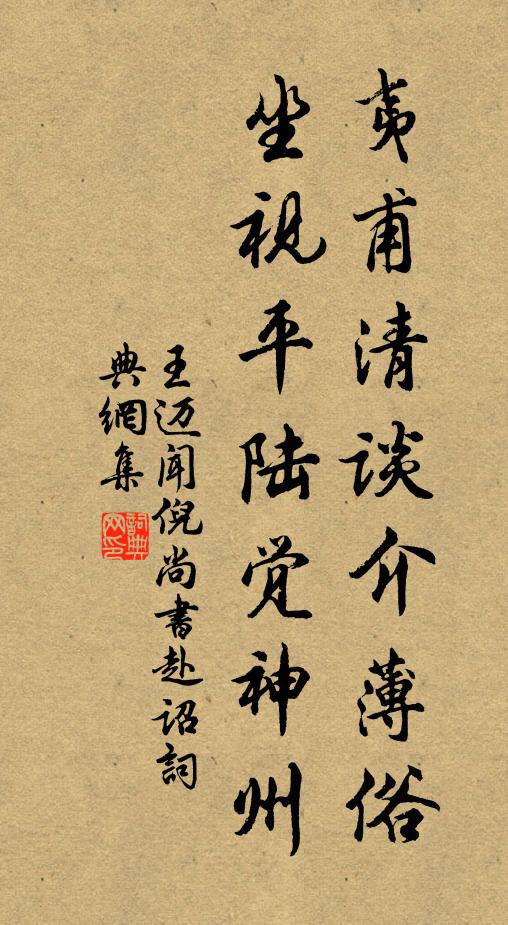 夷甫清谈介薄俗
坐视平陆觉神州
王迈闻倪尚书赴诏詞
典網集
詞典
网印